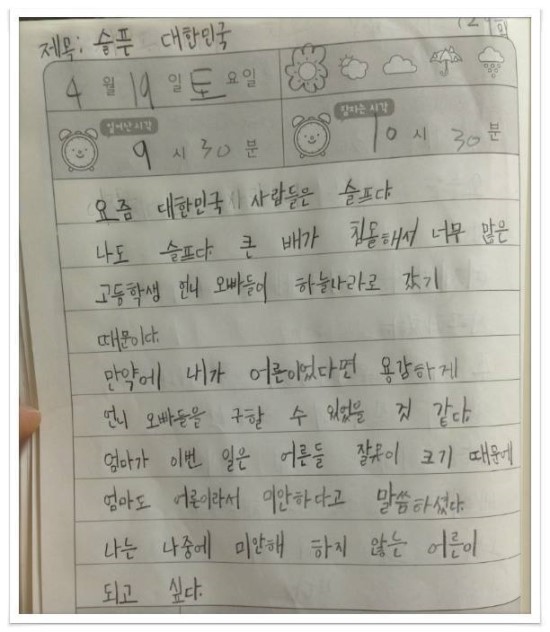 제목: 슬픈 대한민국
4월 19일 토요일
일어난 시각 잠자는 시각
9시 30분 10시 30분
요즘 대한민국 사람들은 슬프다.
나도 슬프다. 큰 배가 침몰해서 너무 많은
고등학생 언니 오빠들이 하늘나라로 갔기
때문이다.
만약에 내가 어른이었다면 용감하게
언니 오빠들을 구할 수 있었을 것 같다.
엄마가 이번 일은 어른들 잘못이 크기 때문에
엄마도 어른이라서 미안하다고 말씀하셨다.
나는 나중에 미안해 하지 않는 어른이
되고 싶다.